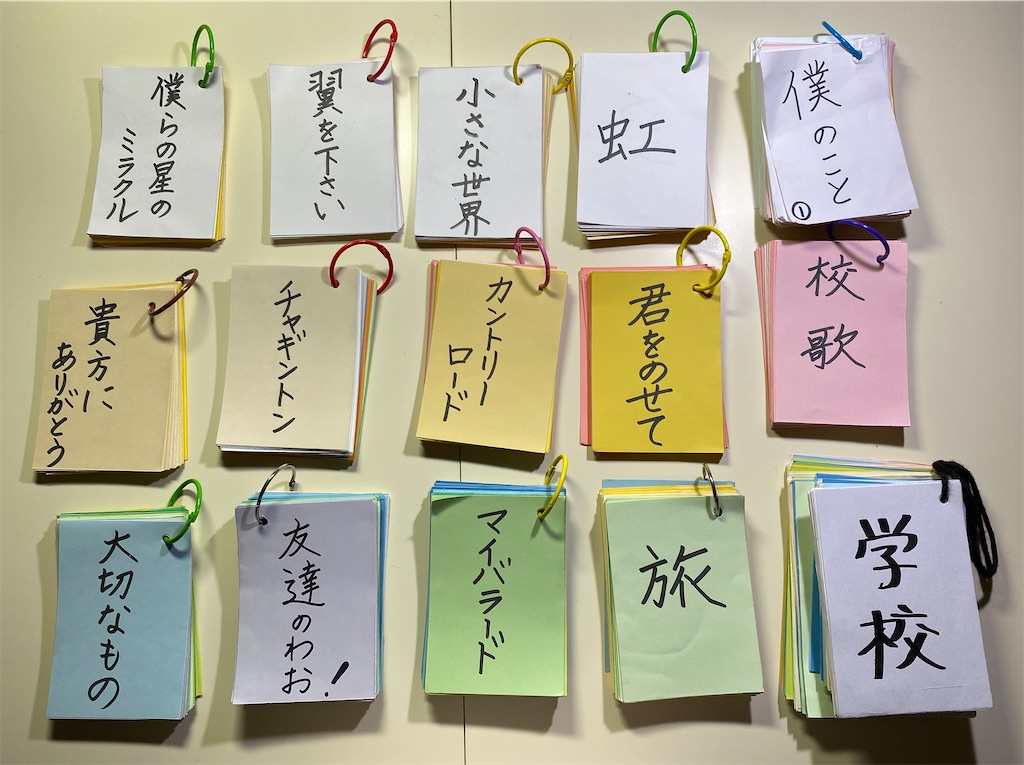 僕らの星の
ミラクル
翼を下さい
小さな世界
虹
僕のこと
①
貴方に
ありがとう
チャギントン
カントリー
ロード
君をのせて
校歌
大切なもの
友達のわお!
マイバラード
旅
学校